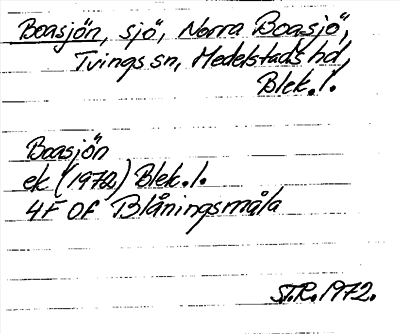 Boasjön, sjö, Norra Boasjö,
Tvings sn, Medelstads hd,
Blek. l.
Boasjön
ek (1972) Blek. l.
4F 0f Blåningsmåla
ST.R. 1972.